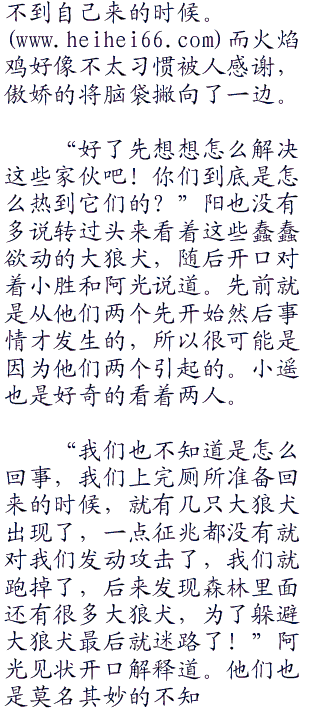 不到自己来的时候。
(www.heihei66.com)而火焰
鸡好像不太习惯被人感谢，
傲娇的将脑袋撇向了一边。
“好了先想想怎么解决
这些家伙吧！你们到底是怎
么热到它们的？”阳也没有
多说转过头来看着这些蠢蠢
欲动的大狼犬，随后开口对
着小胜和阿光说道。先前就
是从他们两个先开始然后事
情才发生的，所以很可能是
因为他们两个引起的。小遥
也是好奇的看着两人。
“我们也不知道是怎么
回事，我们上完厕所准备回
来的时候，就有几只大狼犬
出现了，一点征兆都没有就
对我们发动攻击了，我们就
跑掉了，后来发现森林里面
还有很多大狼犬，为了躲避
大狼犬最后就迷路了！”阿
光见状开口解释道。他们也
是莫名其妙的不知